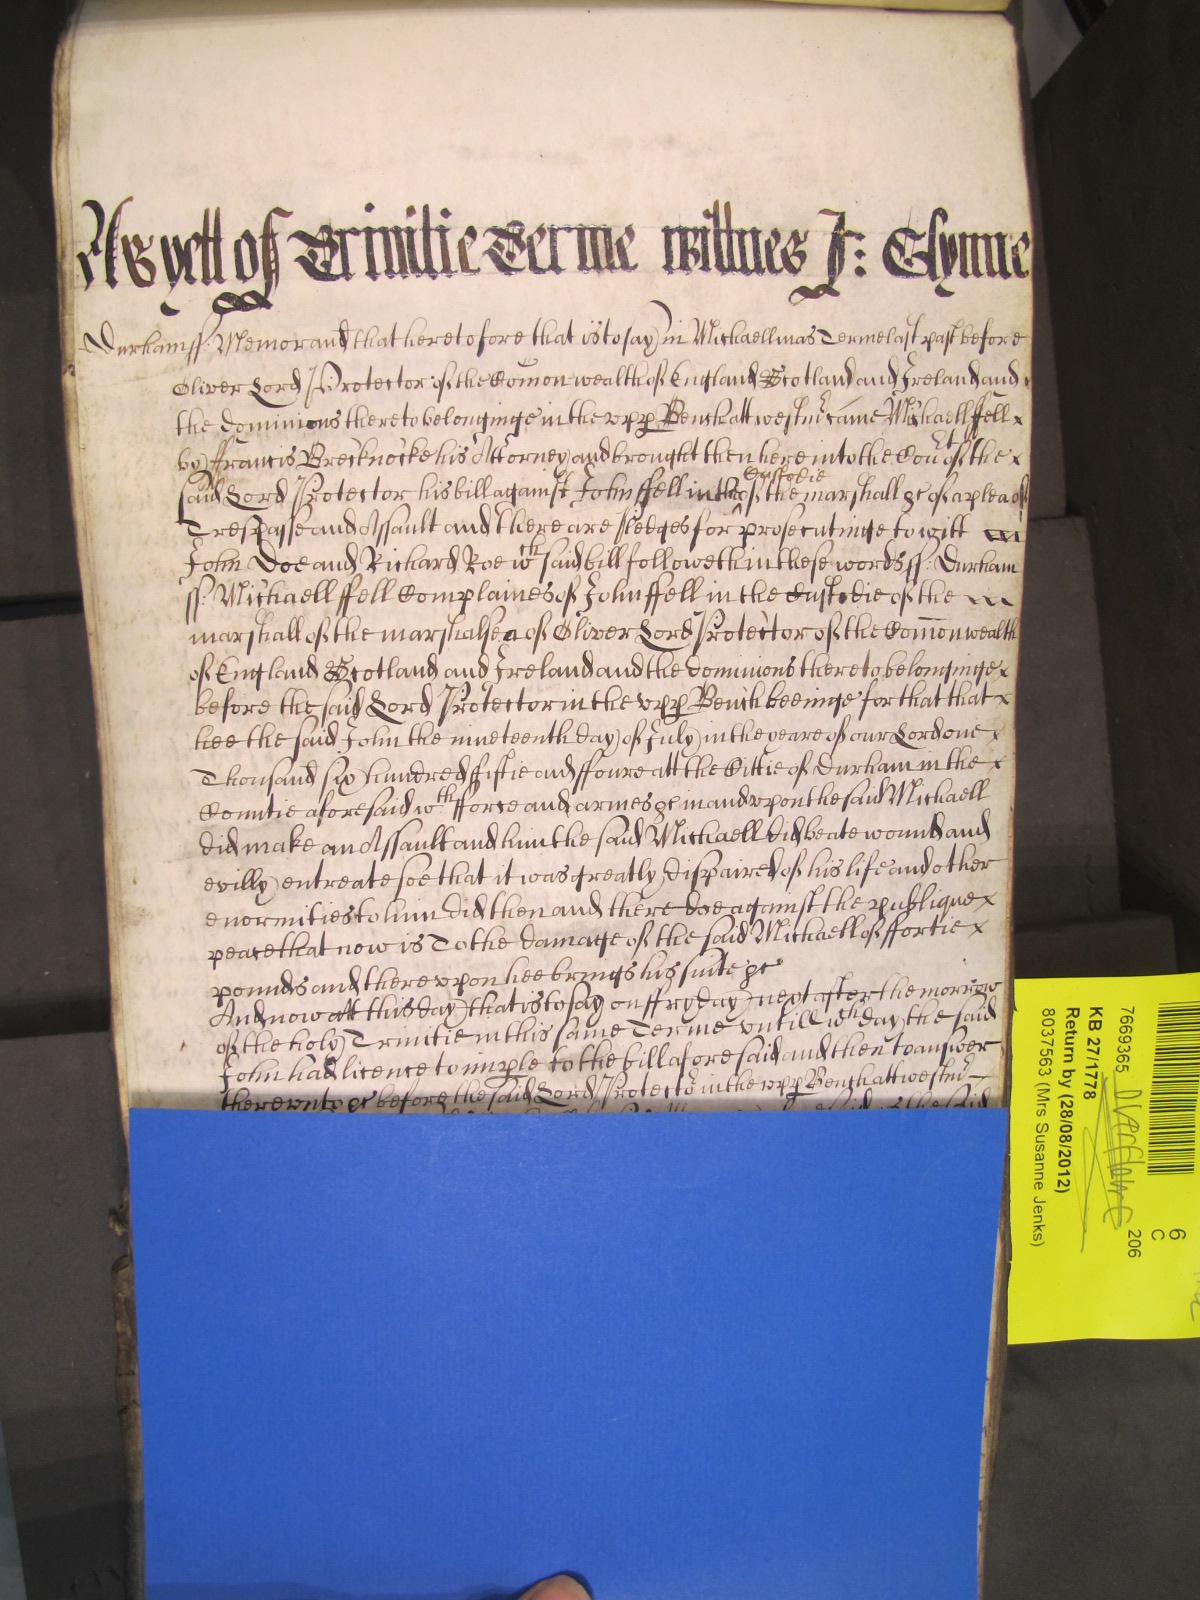 As yett of Trinitie Terme wittnes J: Glynne
Durham ss: Memorand that heretofore that is to say in Michaellmas Terme last past before
Oliver Lord Protector of the Com̄onwealth of England Scotland and Ireland and
the dominions thereto belonginge in the upp Bench att westmr came Michaell ffell x
by ffrancis Brecknocke his Attorney and brought then here into the Court of the x
said Lord Protector his bill against John ffell in the ^custodie of the marshall &c of a plea of
Trespasse and Assault and there are pledges for prosecutinge to witt
John Doe and Richard Roe wch said bill followeth in these words ss: Durham
ss: Michaell ffell Complaines of John ffell in the custodie of the
marshall of the marshalsea of Oliver Lord Protector of the Com̄onwealth
of England Scotland and Ireland and the dominions thereto belonginge x
before the said Lord Protector in the upp Bench beeinge for that that x
hee the said John the nineteenth day of July in the yeare of our Lord one x
Thousand six hundred fiftie and ffoure att the Cittie of Durham in the x
Countie aforesaid wth fforce and armes &c in and upon the said Michaell
did make an Assault and him the said Michaell did beate wound and
evilly entreate soe that it was greatly dispaired of his life and other
enormities to him did then and there doe against the publique x
peace that now is To the damage of the said Michaell of ffortie x
pounds and thereupon hee brings his suite &c
And now att this day that is to say on ffryday next after the morrow
of the holy Trinitie in this same Terme untill wch day the said
John had licence to imple to the bill aforesaid and then to answer
thereunto &c before the said Lord Protector in the upp Bench att westmr
7669365
206
6
C
KB 27/1778
Return by (28/08/2012)
8037563 (Mrs Susanne Jenks)